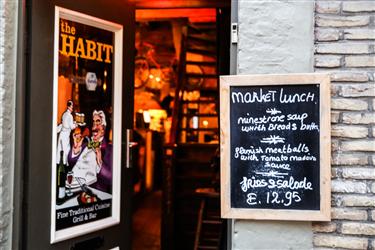 the
HABIT
Fine Traditional Cuisine
Grill & Bar
MARKET LUNCH
minestrone soup
which Breads butter
flemish meatballs
with Tomato madeira
sauce
fries & salade
E. 12.95